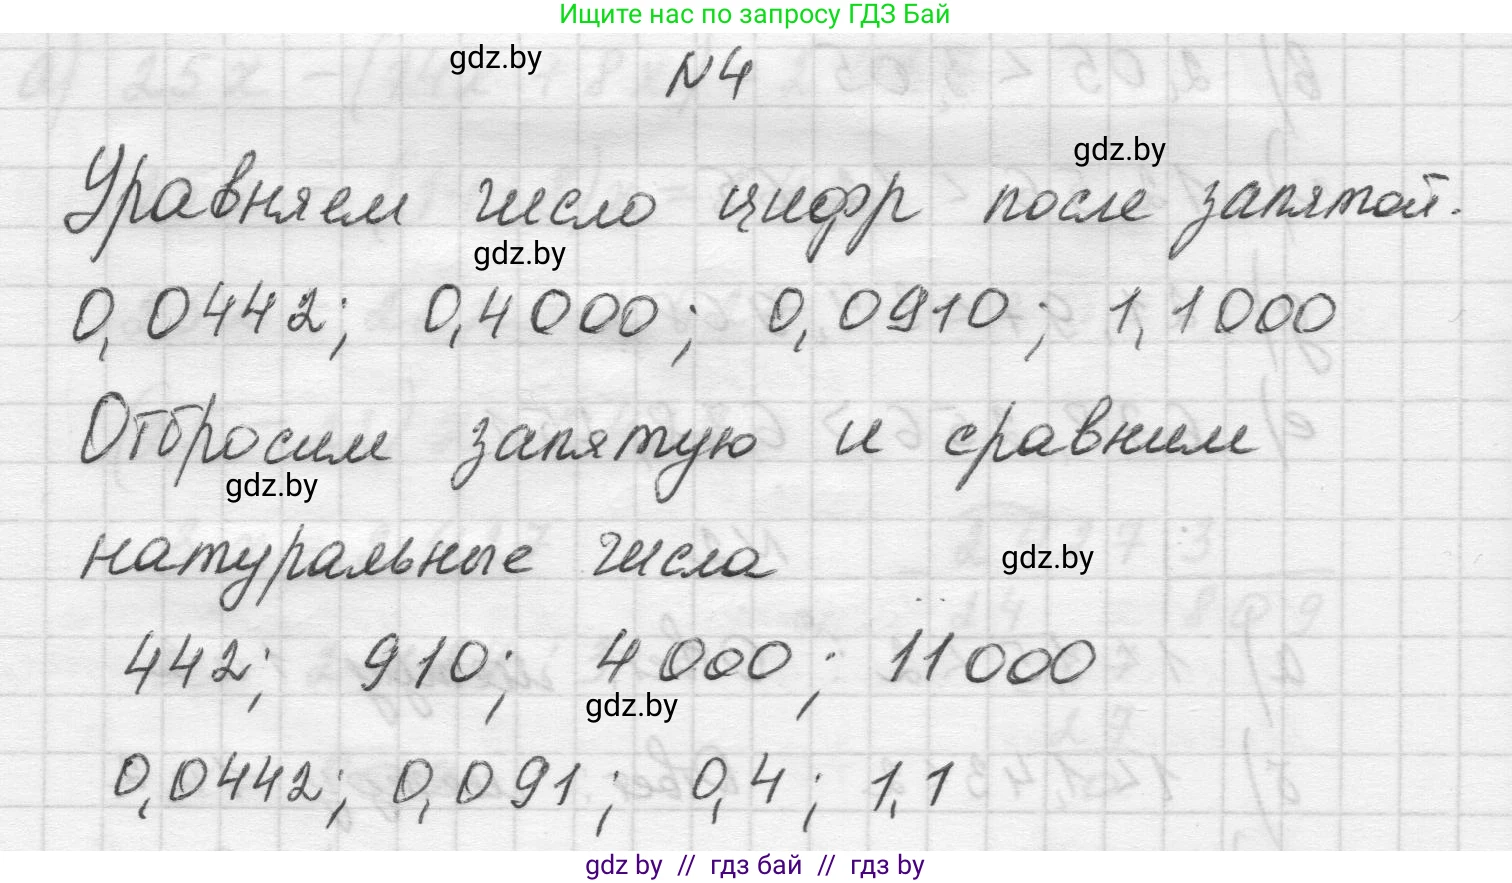 Ищите нас по запросу ГДЗ Бай
gdz.by
N4
gdz.by
Уравняем число цифр после запятой.
gdz.by
0,0442; 0,4000; 0,0910; 1,1000
Отбросим запятую и сравним
gdz.by
натуральные числа
gdz.by
442; 910; 4000; 11000
gdz.by
0,0442; 0,091; 0,4; 1,1
gdz by // гдз бай // гдз by